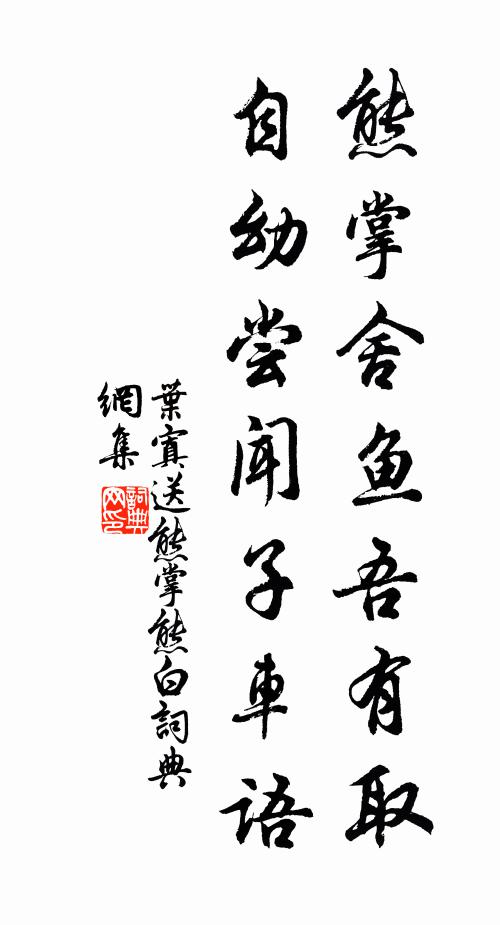 熊掌舍鱼吾有取
自幼尝闻子車語
葉寘送熊掌熊白詞典
網集
詞典网印